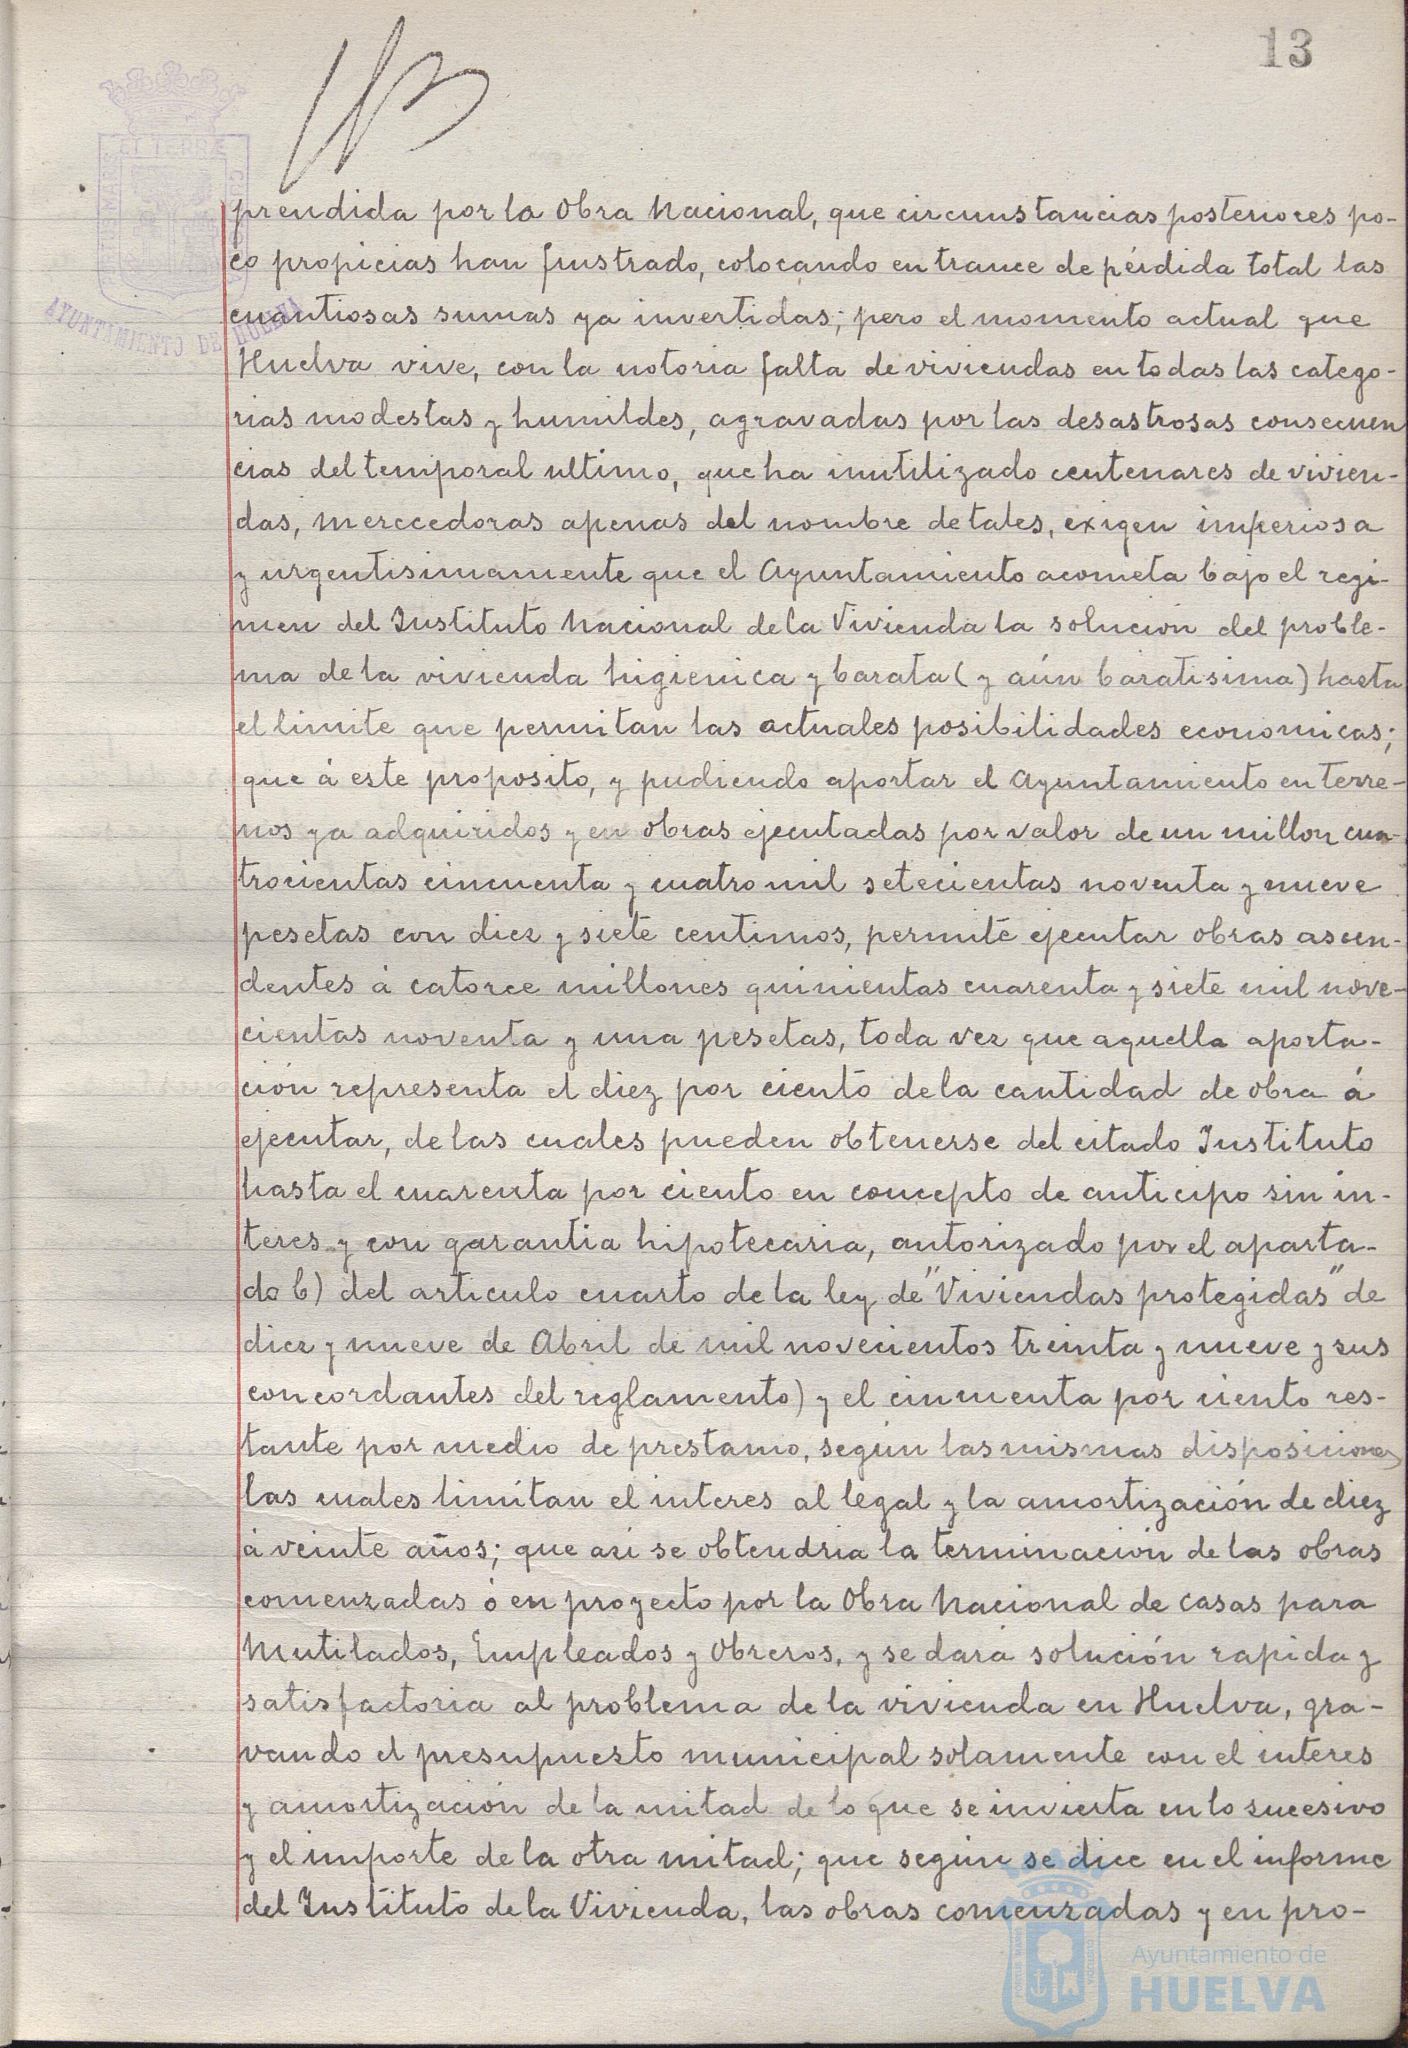 13
prendida por la Obra Nacional, que circunstancias posteriores po-
co propicias han frustrado, colocando en trance de pérdida total las
cuantiosas sumas ya invertidas; pero el momento actual que
Huelva vive, con la notoria falta de viviendas en todas las catego-
rias modestas y humildes, agravadas por las desastrosas consecuen
cias del temporal ultimo, que ha inutilizado centenares de vivien-
das, merecedoras apenas del nombre de tales, exigen imperiosa
y urgentisimamente que el Ayuntamiento acometa bajo el regi-
men del Instituto Nacional de la Vivienda la solucion del proble-
ma de la vivienda higienica y barata (y aún baratisima) hasta
el limite que permitan las actuales posibilidades economicas;
que á este proposito, y pudiendo aportar el Ayuntamiento en terre-
nos ya adquiridos y en obras ejecutadas por valor de un millon cua-
trocientas cincuenta y cuatro mil setecientas noventa y nueve
pesetas con diez y siete centimos, permite ejecutar obras ascen-
dentes á catorce millones quinientas cuarenta y siete mil nove-
cientas noventa y una pesetas, toda vez que aquella aporta-
ción representa el diez por ciento de la cantidad de obra á
ejecutar, de las cuales pueden obtenerse del citado Instituto
hasta el cuarenta por ciento en concepto de anticipo sin in-
teres y con garantia hipotecaria, autorizado por el aparta-
do b) del articulo cuarto de la ley de "Viviendas protegidas" de
diez y nueve de Abril de mil novecientos treinta y nueve y sus
concordantes del reglamento) y el cincuenta por ciento res-
tante por medio de prestamo, según las mismas disposiciones
las cuales limitan el interes al legal y la amortización de diez
á veinte años; que asi se obtendria la terminación de las obras
comenzadas ó en proyecto por la Obra Nacional de casas para
Mutilados, Empleados y Obreros, y se dará solución rapida y
satisfactoria al problema de la vivienda en Huelva, gra-
vando el presupuesto municipal solamente con el interes
y amortización de la mitad de lo que se invierta en lo sucesivo
y el importe de la otra mitad; que según se dice en el informe
del Instituto de la Vivienda, las obras comenzadas y en pro-
AYUNTAMIENTO DE HUELVA
Ayuntamiento de
HUELVA